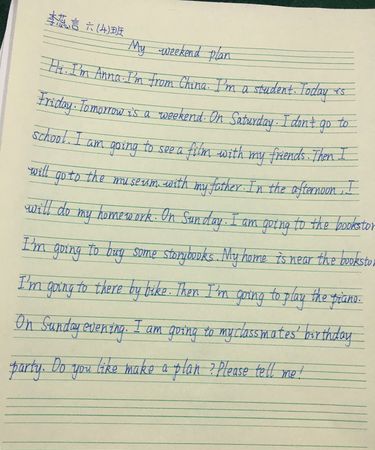 李蕊言 六(4)班
My weekend plan
Hi. I'm Anna. I'm from China. I'm a student. Today is
Friday. Tomorrow is a weekend. On Saturday. I don't go to
school. I am going to see a film with my friends. Then I
will go to the museum with my father. In the afternoon, I
will do my homework. On Sunday. I am going to the bookstor
I'm going to buy some storybooks. My home is near the booksto
I'm going to there by bike. Then I'm going to play the piano.
On Sunday evening. I am going to my classmates' birthday
party. Do you like make a plan ? Please tell me!